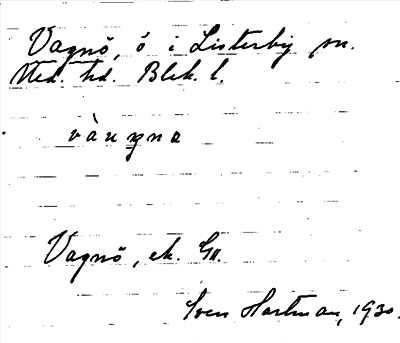 Vagnö, ö i Listerby sn.
Med. hd. Blek. l.
vàuŋna
Vagnö, ek. Gu.
Sven Hartman, 1930.